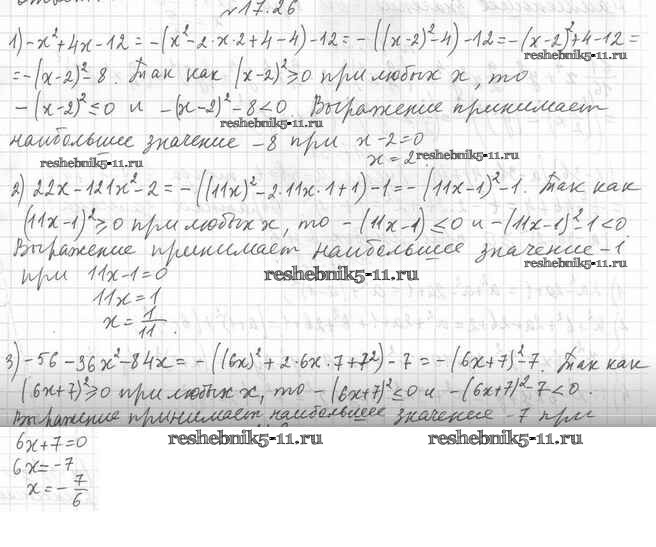 №17.26
1) -x²+4x-12 = -(x²-2·x·2+4-4)-12 = -((x-2)²-4)-12 = -(x-2)²+4-12 =
reshebnik5-11.ru
= -(x-2)²-8. Так как (x-2)²≥0 при любых x, то
-(x-2)²≤0 и -(x-2)²-8<0. Выражение принимает
reshebnik5-11.ru
наибольшее значение -8 при x-2=0
reshebnik5-11.ru
x=2. reshebnik5-11.ru
2) 22x-121x²-2 = -((11x)²-2·11x·1+1)-1 = -(11x-1)²-1. Так как
(11x-1)²≥0 при любых x, то -(11x-1)≤0 и -(11x-1)²-1<0.
Выражение принимает наибольшее значение -1
reshebnik5-11.ru
при 11x-1=0
reshebnik5-11.ru
11x=1
x=1/11.
3) -56-36x²-84x = -((6x)²+2·6x·7+7²)-7 = -(6x+7)²-7. Так как
(6x+7)²≥0 при любых x, то -(6x+7)²≤0 и -(6x+7)²-7<0.
Выражение принимает наибольшее значение -7 при
6x+7=0
reshebnik5-11.ru reshebnik5-11.ru
6x=-7
x=-7/6